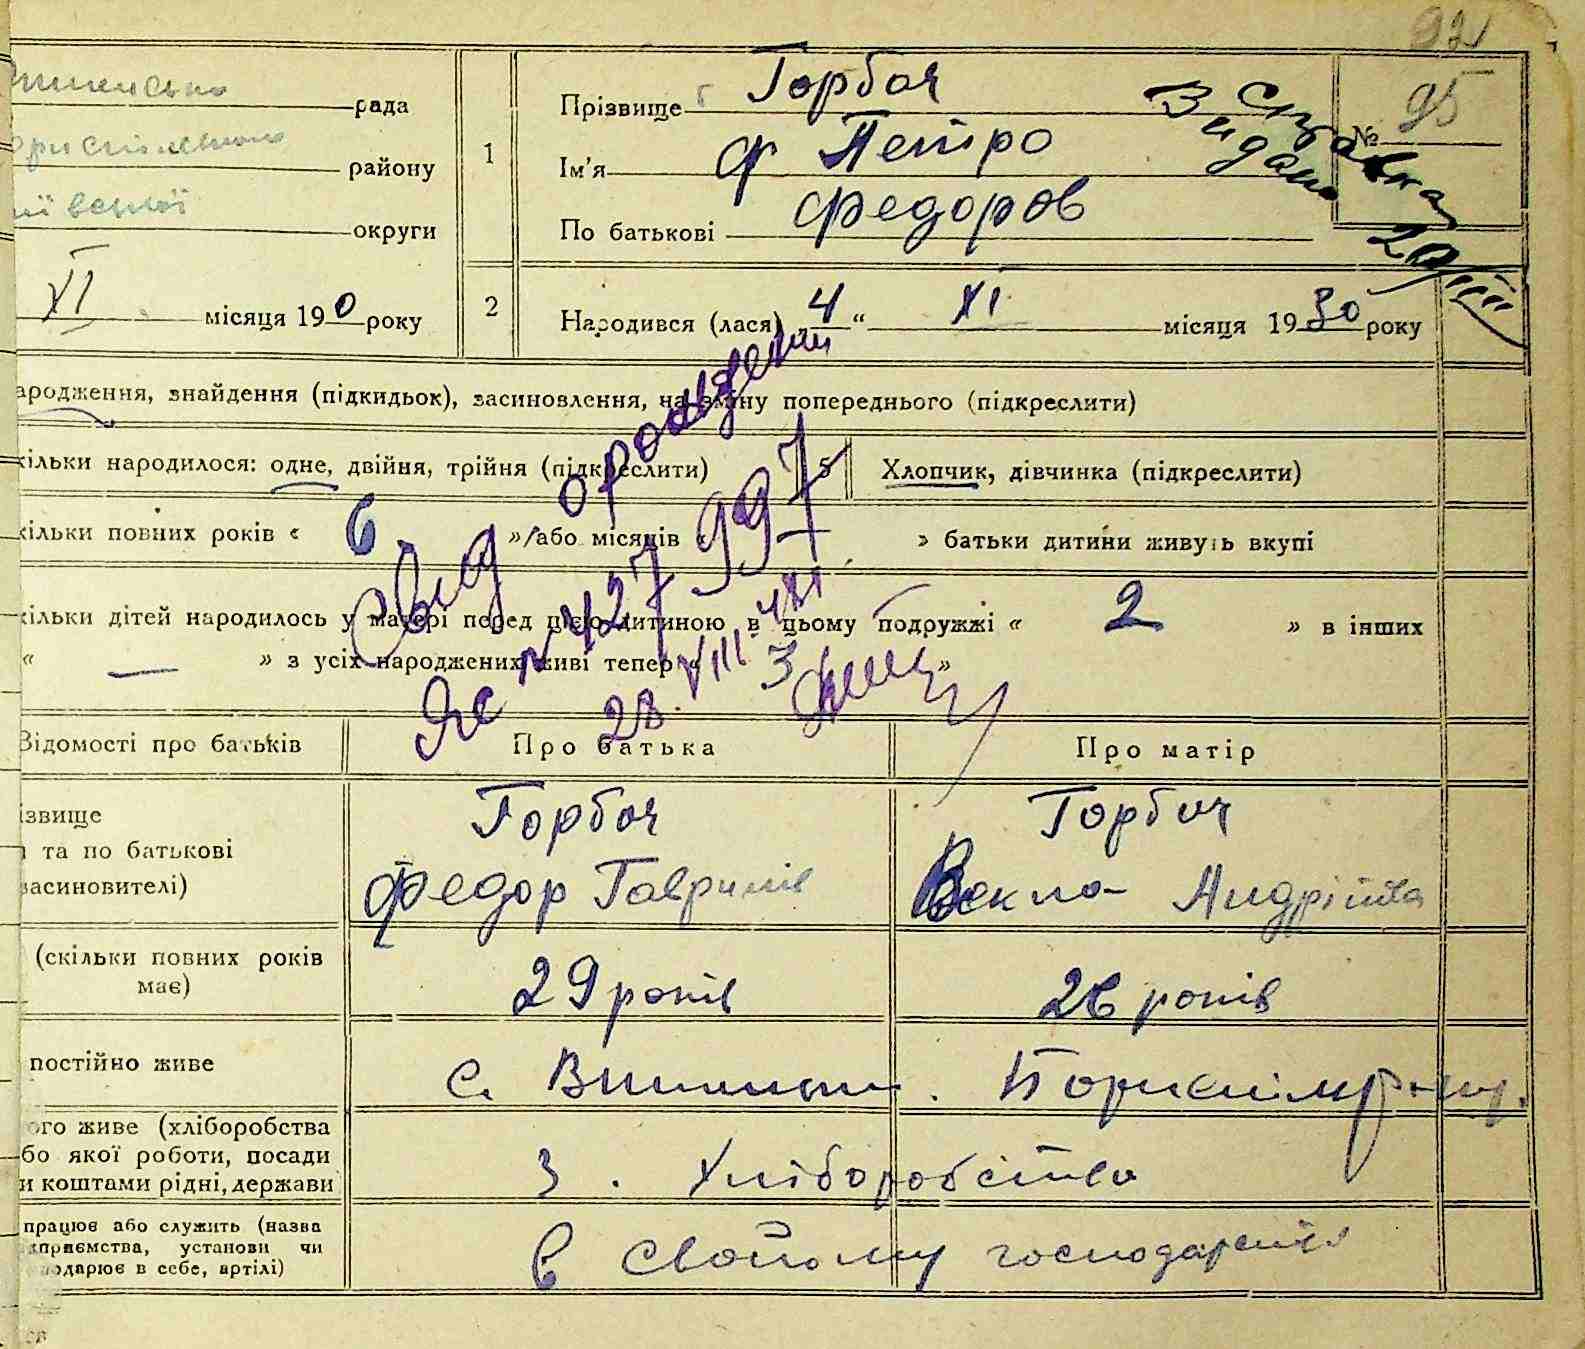 92
рада
району
округи
XI місяця 190 року
1
Прізвище Горбач
Ім'я Петро
По батькові Федоров
№ 95
Справка
Видана
2
Народився (лася) „4“ XI місяця 1930 року
ародження, знайдення (підкидьок), засиновлення, на зміну попереднього (підкреслити)
кільки народилося: одне, двійня, трійня (підкреслити)
5 Хлопчик, дівчинка (підкреслити)
кільки повних років « 6 »/або місяців « » батьки дитини живуть вкупі
кільки дітей народилось у матері перед цією дитиною в цьому подружжі « 2 » в інших
« — » з усіх народжених живі тепер « 3 »
Свид о рождении
ЯС № 427997
28 VIII
Відомості про батьків
Про батька
Про матір
ізвище
та по батькові
засиновителі)
Горбач
Федор Гаврилів
Горбач
Векла Андріївна
(скільки повних років
має)
29 років
26 років
постійно живе
с.
ого живе (хліборобства
бо якої роботи, посади
и коштами рідні, держави
З. Хліборобства
працює або служить (назва
дприємства, установи чи
подарює в себе, артілі)
В свойому господарстві